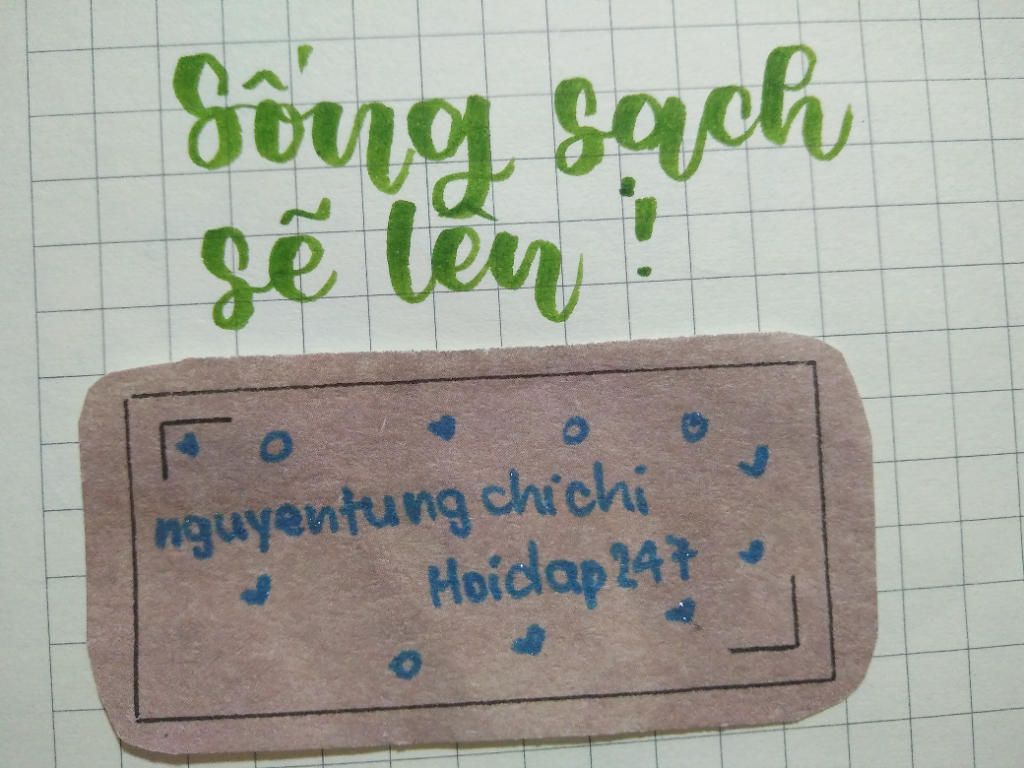 Sống sạch
sẽ lên !
nguyentung chichi
Hoidap247